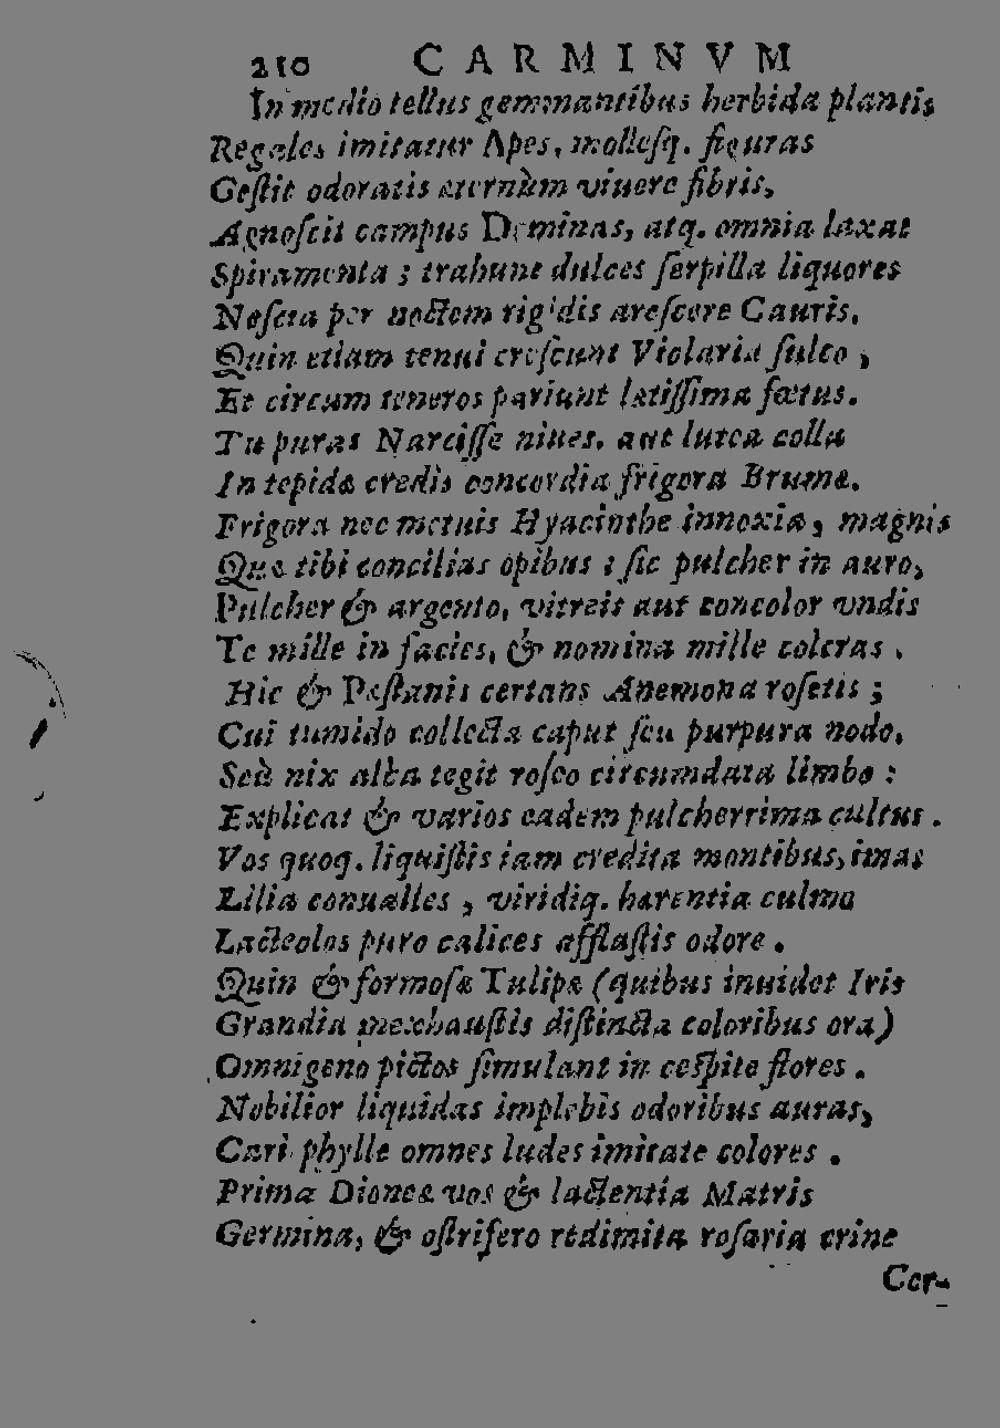 210 CARMINVM
In medio tellus gemmantibus herbida plantis
Regales imitatur Apes, mollesq. figuras
Gestit odoratis æternùm viuere fibris,
Agnoscit campus Dominas, atq. omnia laxat
Spiramenta ; trahunt dulces serpilla liquores
Nescia per noctem rigidis arescere Cauris.
Quin etiam tenui crescunt Violaria sulco ,
Et circum teneros pariunt lætissima fœtus.
Tu puras Narcisse niues, aut lutea colla
In tepidæ credis concordia frigora Brumæ.
Frigora nec metuis Hyacinthe innoxia, magnis
Quæ tibi concilias opibus : sic pulcher in auro,
Pulcher & argento, vitreis aut concolor vndis
Te mille in facies, & nomina mille coleras .
Hic & Pæstanis certans Anemona rosetis ;
Cui tumido collecta caput seu purpura nodo,
Seù nix alba tegit roseo circumdata limbo :
Explicat & varios eadem pulcherrima cultus .
Vos quoq. liquistis iam credita montibus, imas
Lilia conualles , viridiq. hærentia culmo
Lacteolos puro calices afflastis odore .
Quin & formosæ Tulipæ (quibus inuidet Iris
Grandia inexhaustis distincta coloribus ora)
Omnigeno pictos simulant in cespite flores .
Nobilior liquidas implebis odoribus auras,
Cariophylle omnes ludes imitate colores .
Prima Dioneæ vos & lactentia Matris
Germina, & ostrifero redimita rosaria crine
Cer-